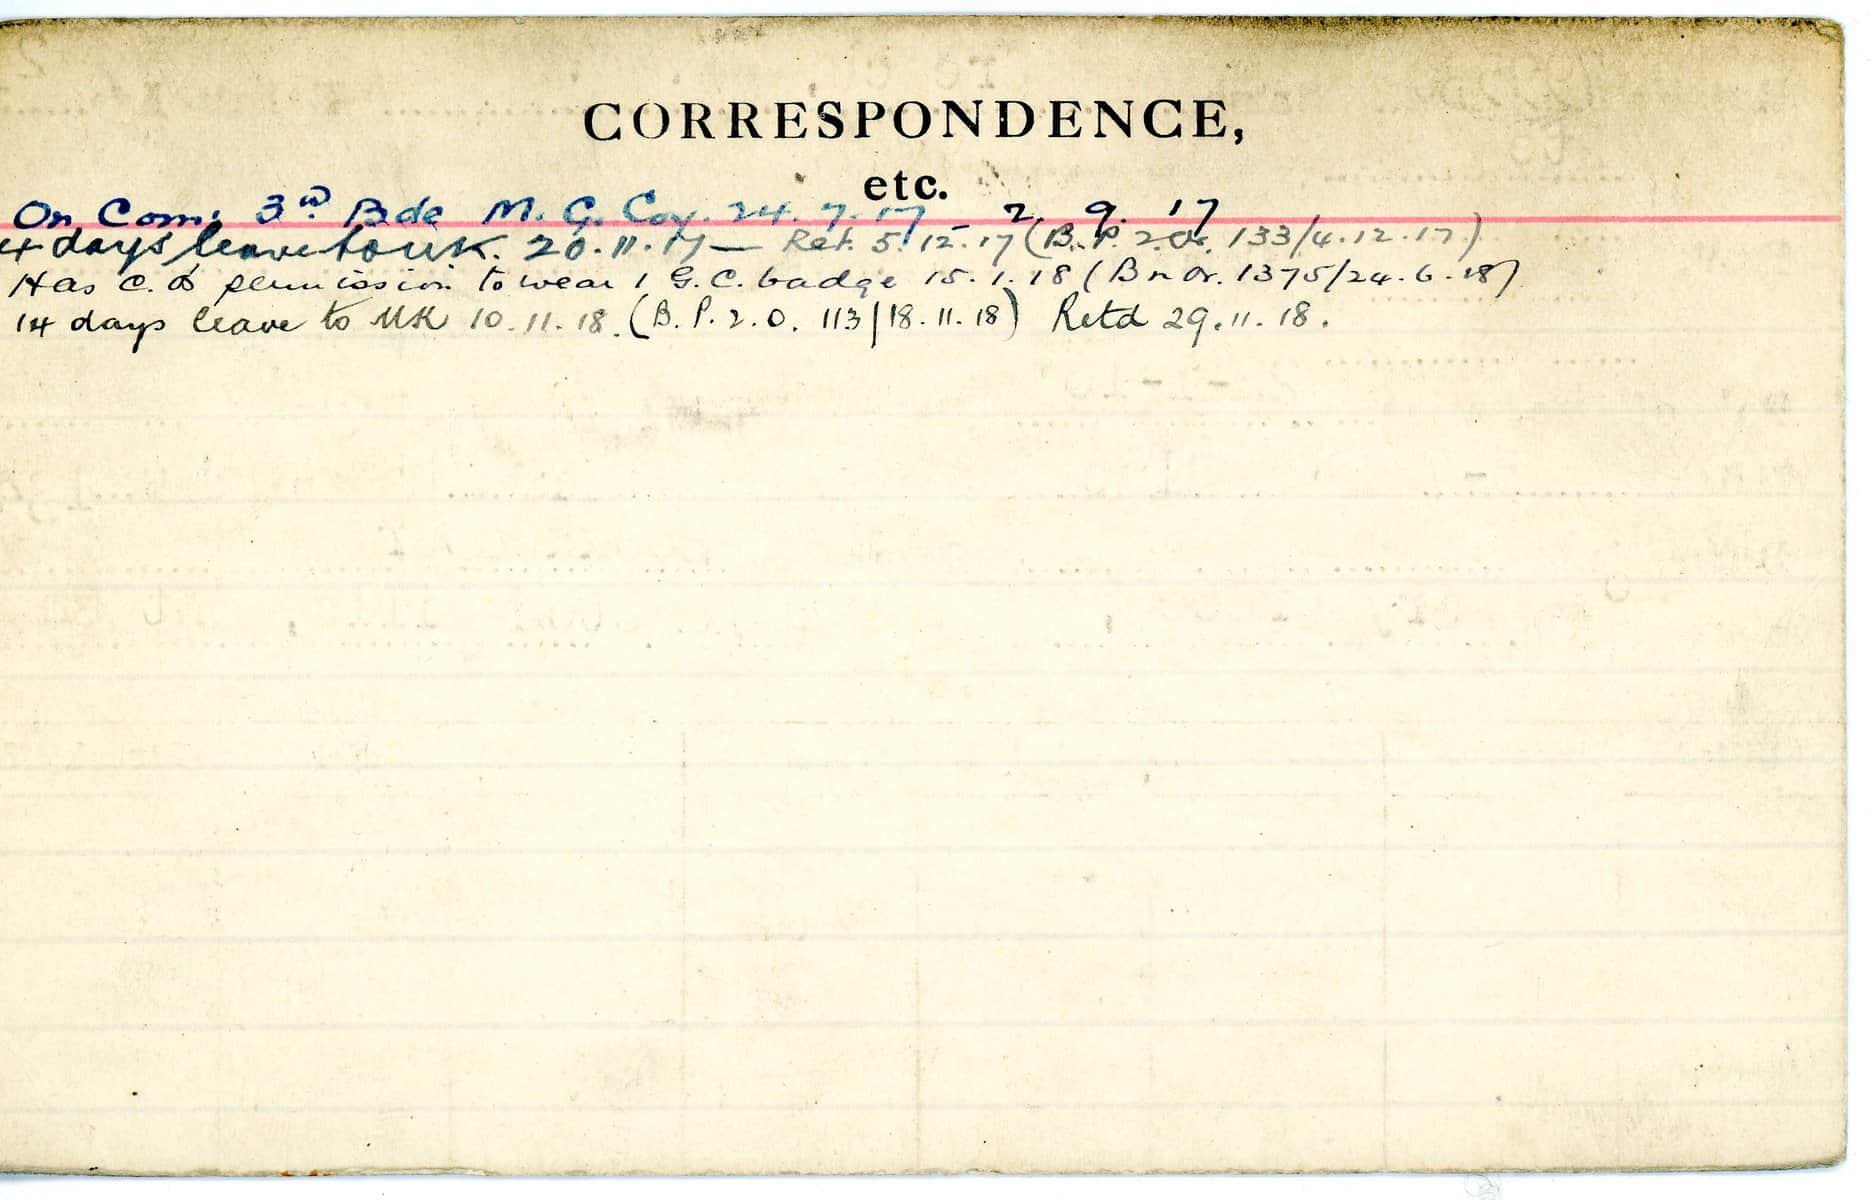 CORRESPONDENCE,
etc.
On Com. 3rd Bde M. G. Coy. 24. 7. 17 2. 9. 17
4 days leave to UK. 20.11.17 — Ret. 5.12.17 (B.P. 2.Or. 133/4.12.17)
Has C.O's permission to wear 1 G.C. badge 15.1.18 (Bn Or. 1375/24.6.18)
14 days leave to UK 10.11.18. (B.P.2.O. 113/18.11.18) Retd 29.11.18.